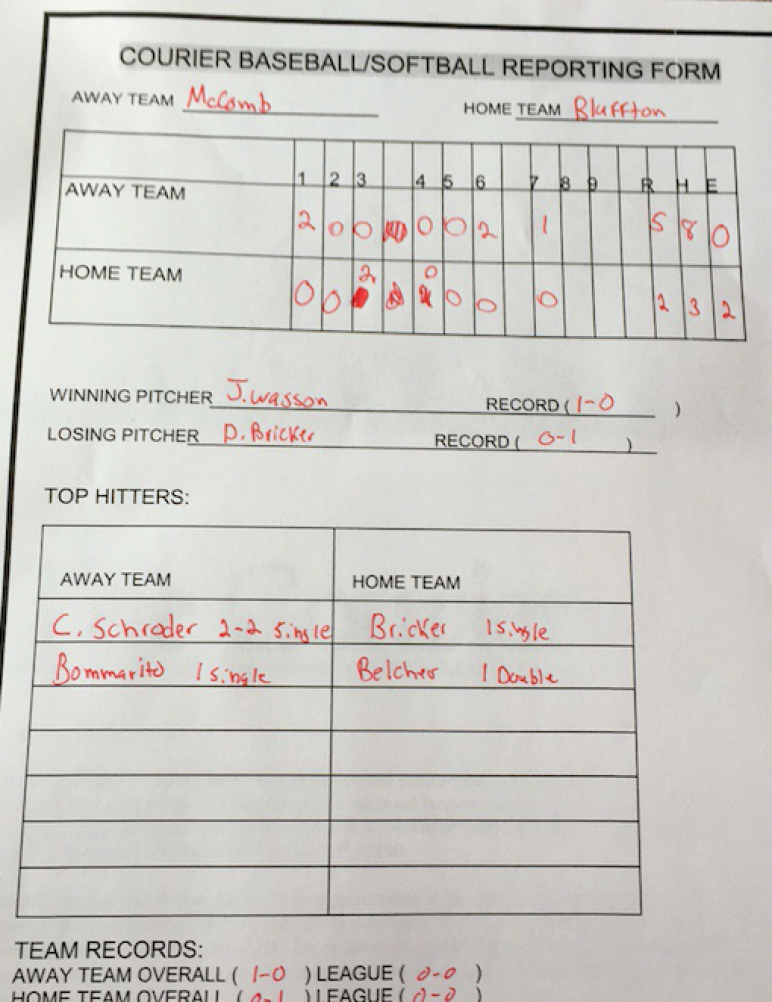 COURIER BASEBALL/SOFTBALL REPORTING FORM
AWAY TEAM McComb HOME TEAM Bluffton
1 2 3 4 5 6 7 8 9 R H E
AWAY TEAM
2 0 0 0 0 2 1 5 8 0
HOME TEAM
2 0
0 0 0 0 0 2 3 2
WINNING PITCHER J. Wasson RECORD ( 1-0 )
LOSING PITCHER D. Bricker RECORD ( 0-1 )
TOP HITTERS:
AWAY TEAM HOME TEAM
C. Schroder 2-2 Single Bricker 1 Single
Bommarito 1 Single Belcher 1 Double
TEAM RECORDS:
AWAY TEAM OVERALL ( 1-0 ) LEAGUE ( 0-0 )
HOME TEAM OVERALL ( 0-1 ) LEAGUE ( 0-0 )